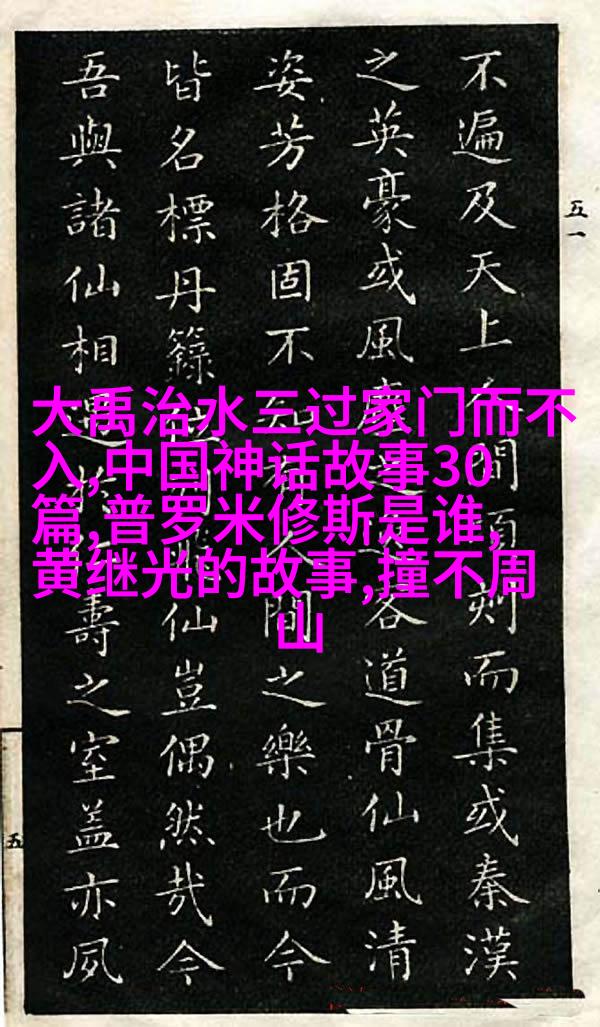 大禹治水三过家门而不
入,中国神话故事30
篇,普罗米修斯是谁,
黄继光的故事,撞不周
山
五一
不遍及天上間頃刻而集或秦漢
之英豪或風塵各道骨仙風清
姿芳格固不知有人間之樂也而今
皆名標丹籙列仙豈偶然哉今
吾與諸仙相遇於壽之室蓋亦夙
五